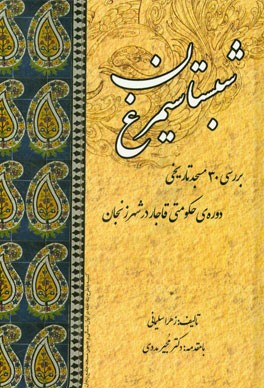 شبستان سیمرغ
بررسی ۳۰ مسجد تاریخی
دوره‌ی حکومتی قاجار در شهر زنجان
تألیف: زهرا سلیمانی
با مقدمه: دکتر مجیر مددی